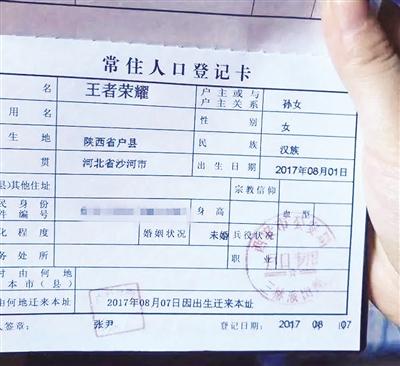 常住人口登记卡
名 王者荣耀 户主或与户主关系 孙女
用名 性别 女
生地 陕西省户县 民族 汉族
贯 河北省沙河市 出生日期 2017年08月01日
县)其他住址 宗教信仰
民身份件编号 身高 血型
化程度 婚姻状况 未婚 兵役状况
务处所 职业
时由何地本市(县)
由何地迁来本址 2017年08月07日因出生迁来本址
人签章: 张尹 登记日期: 2017 年 08 月 07